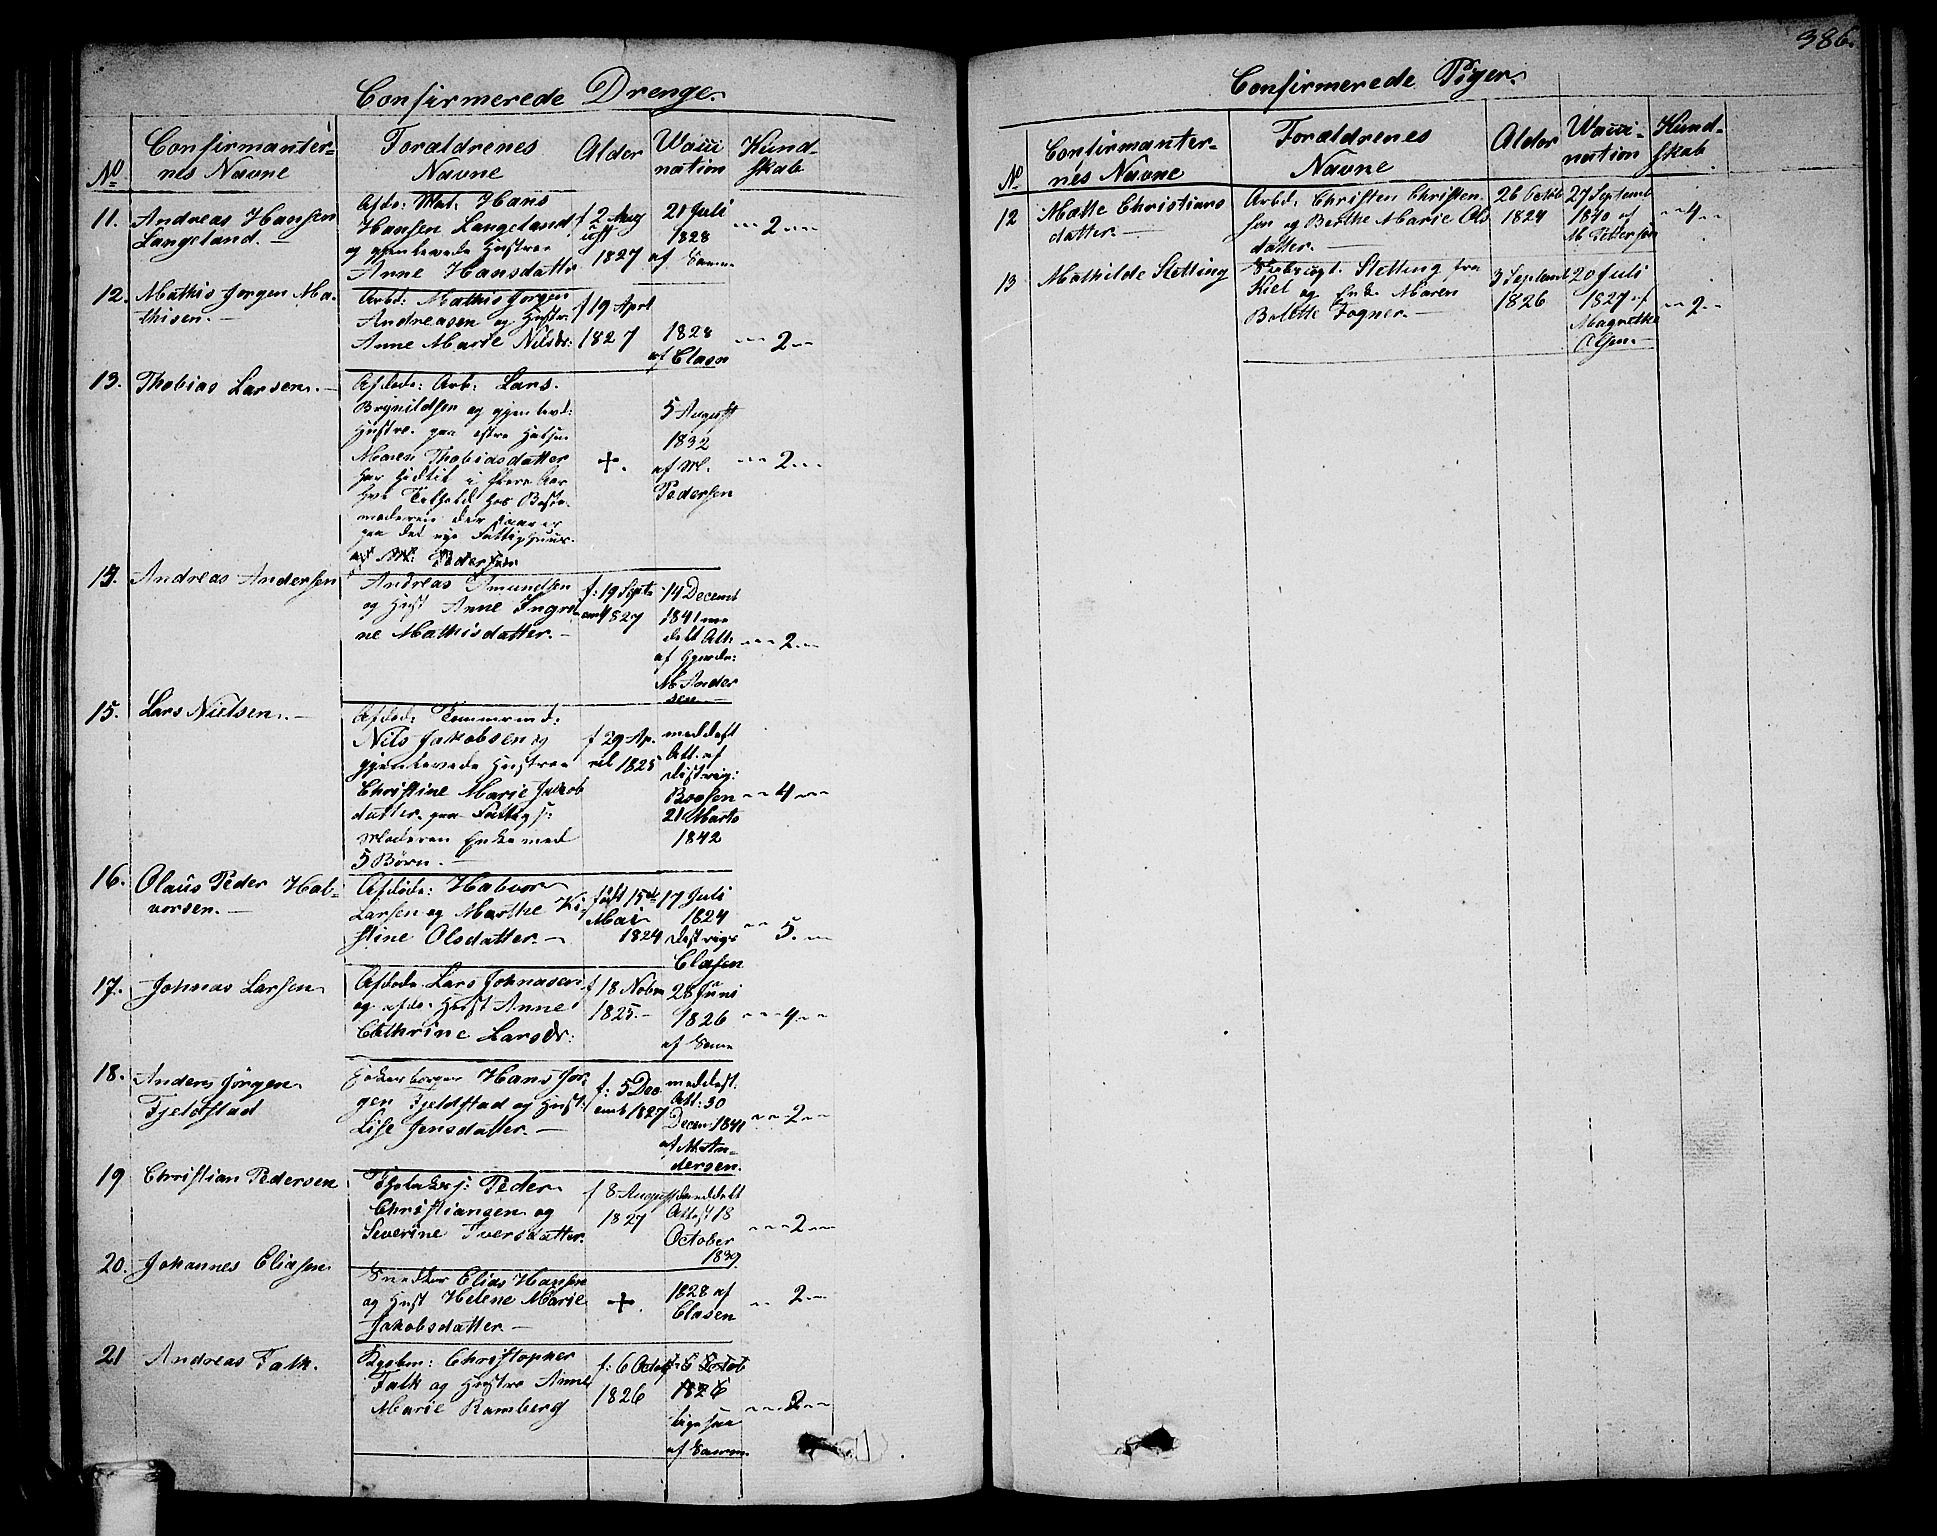 386.
Confirmerede Drenge.
No
Confirmanter-
nes Navne
Foraldrenes
Navne
Alder
Wacci
nation
Kund-
skab
11. Andreas Hansen
Langeland. —
Afdø: Mat: Hans
Hansen Langeland
og gjenlevede Hustrue
Anne Hansdatter
f 2 Aug
ust
1827
21 Juli
1828
af Samme
2
12. Mathis Jørgen Ma-
thisen. —
Arbd: Mathis Jørgen
Andreasen og Hustr:
Anne Marie Nilsdr:
f 19 April
1827
1828
af Clasen
2
13. Thobias Larsen. —
Afdøde: Arb: Lars
Brynildsen og gjenlevd:
Hustrue
Maren Thobiasdatter
har hidtil i flere Aar
Tilhold hos Beste-
moderen der
paa det nye Fattighuus.
af M: Pedersen
+.
5 August
1832
af M.
Pedersen
2
14. Andreas Andersen
Andreas Amundsen
og Hust Anne Ingre-
ne Mathisdatter. —
f: 19 Sept-
emb 1827
14 Decemb
1841 me
delt Att:
af Hjorde:
M Ander
sen —
2
15. Lars Nielsen. —
Afdøde: Tømmermd:
Nils Jakobsen og
gjenlevede Hustrue
Christine Marie Jakob
datter. paa Fattigs:
Moderen Enke med
5 Børn. —
f 29 Ap-
ril 1825
meddelt
Att. af
Distrig:
Boesen
21 Marts
1842
4
16. Olaus Peder Hal-
vorsen. —
Afdøde: Halvor
Larsen og Marthe Ki-
stine Olsdatter. —
født 15de
Mai
1824
17 Juli
1824
Distrigs
Clasen
5.
17. Johnas Larsen
Afdøde Lars Johnasen
og afdø. Hust Anne
Cathrine Larsdr:
f 18 Nobm
1825. —
28 Juni
1826
af Samme
4
18. Anders Jørgen
Fjeldstad
Hans Jør-
gen Fjeldstad og Hust:
Lise Jensdatter. —
f: 5 Dec
emb 1827
meddelt.
Att: 30
Decem 1841
af M. An-
dersen.
2
19 Christian Pedersen
Peder
Christiansen og
Severine Iversdatter.
f 8 August
1827
meddelt
Attest 18
October
1839
2
20. Johannes Eliasen
Snedker Elias Hansen
og Hust Helene Marie
Jakobsdatter —
+.
1828 af
Clasen
2
21 Andreas Falk.
Christopher
Falk og Hustrue Anne
Marie Ramberg
f: 6 Octob
1826
6 Octob
1826
ligesaa
af Samme
2
Confirmerede Piger.
No
Confirmanter-
nes Navne
Foraldrenes
Navne
Alder
Wacci-
nation
Kund-
skab
12 Mætte Christians
datter. —
Arbd: Christen Christen-
sen og Berthe Marie Ols
datter. —
26 Octbb
1824
27 Septemb
1840 af
M Pedersen
4
13 Mathilde Sletting
Sletting fra
Kiel og Enke Maren
Bolette Fogner. —
3 Septemb
1826
20 Juli
1827 af
Magrethe
Olsen. —
2